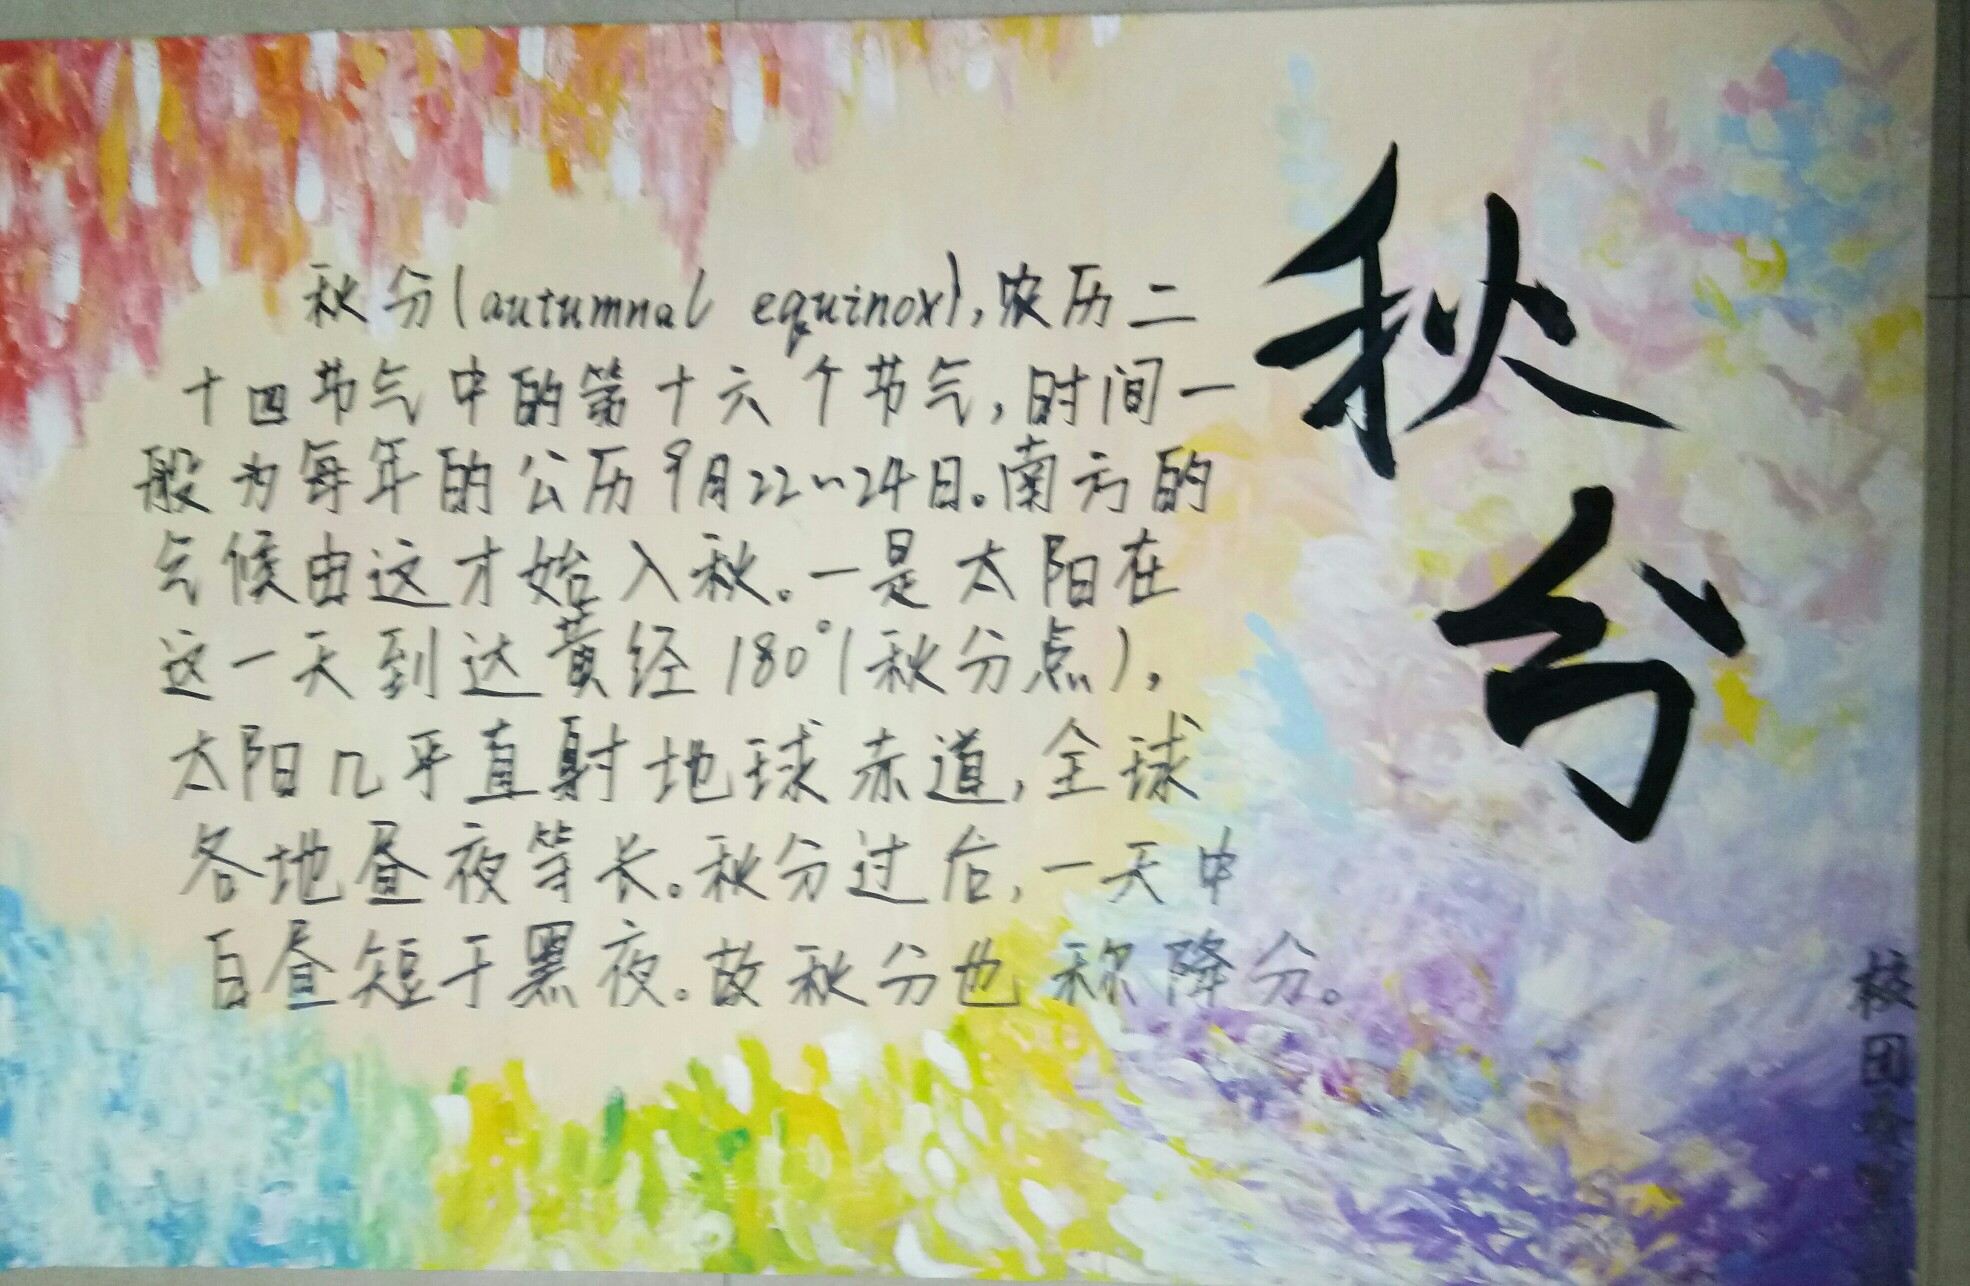 秋分
秋分(autumnal equinox),农历二
十四节气中的第十六个节气,时间一
般为每年的公历9月22~24日。南方的
气候由这才始入秋。一是太阳在
这一天到达黄经180°(秋分点),
太阳几乎直射地球赤道,全球
各地昼夜等长。秋分过后,一天中
白昼短于黑夜。故秋分也称降分。
校团委